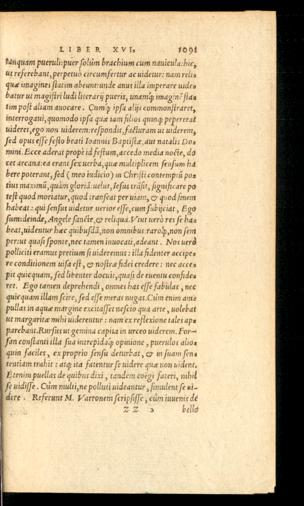 LIBER XVI. 1091
tanquam puerulî: puer solùm brachium cum nauicula: hîc,
ut referebant, perpetuò circumfertur ac uidetur: nam reli⸗
quæ imagines statim abeunt: unde anui illa imperare uide⸗
batur ut magistri ludi literarij pueris, imaginẽ sta⸗
tim post aliam auocare. Cumq́; ipsa alijs commonstraret,
interrogaui, quomodo ipsa quæ iam filios quinq; pepererat
uideret, ego non uiderem: respondit, facturam ut uiderem,
sed opus esse festo beati Ioannis Baptistæ, aut natalis Do⸗
mini. Ecce aderat propè id festum, accedo media nocte, do
cet arcana: ea erant sex uerba, quæ multiplicem sensum ha
bere poterant, sed (meo iudicio) in Christi contemptũ po⸗
tius maximũ, quàm gloriã: uelut, Iesus trãsit, significare po
test quod mortatur, quod transeat per uiam, & quod finem
habeat: qui sensus uidetur uerior esse, cum subijciat, Ego
sum: deinde, Angele sancte, & reliqua. Vtut uerò res se ha⸗
beat, uidentur hæc quibusdã, non omnibus: raroq́;, non sem
per: ut quasi sponte, nec tamen inuocati, adeant. Nos uerò
polliciti eramus pretium si uideremus: illa fidenter accipe⸗
re conditionem uisa est, & nostra fidei credere: nec accœ
pit quicquam, sed libenter docuit, quasi de euentu confide⸗
ret. Ego tamen deprehendi, omnes has esse fabulas, nec
quicquam illam scire, sed esse meras nugas. Cùm enim am⸗
pullas in aquæ margine excitasset nescio qua arte, uolebat
ut margaritæ mihi uiderentur: nam ex reflexione tales ap⸗
parebant. Rursus ut gemina capita in urceo uiderem. For⸗
san constanti illa sua intrepidaq́; opinione, puerulos alio⸗
quin faciles, ex proprio sensu deturbat, & in suam sen⸗
tentiam trahit: atq; ita fatentur se uidere quæ non uident.
Etenim puellas de quibus dixi, tandem coëgi fateri, nihil
se uidisse. Cùm multi, ne polluti uideantur, simulent se ui⸗
dere. Referunt M. Varronem scripsisse, cùm iuuenis de
ZZ 2 bello